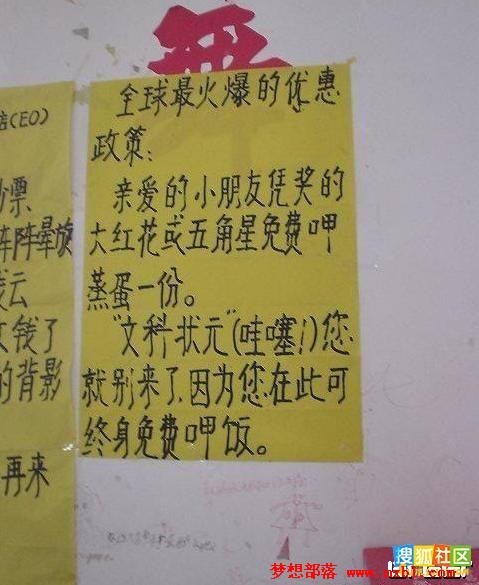 信(CEO)
票
阵阵晕旋
云
钱了
的背影
再来
全球最火爆的优惠
政策:
亲爱的小朋友凭奖的
大红花或五角星免费呷
蒸蛋一份。
"文科状元"(哇噻!)您
就别来了,因为您在此可
终身免费呷饭。
搜狐社区
梦想部落